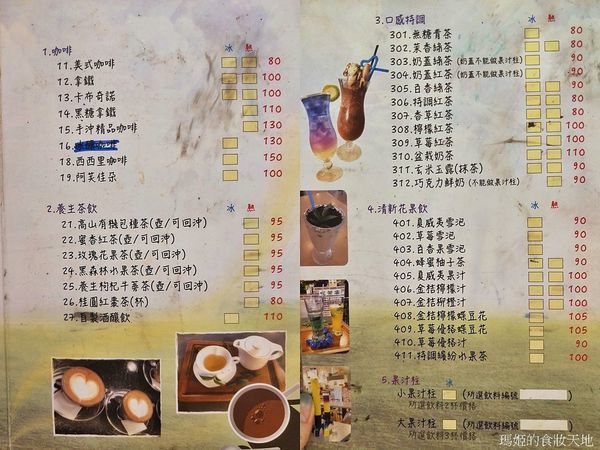 1.咖啡 冰 熱
11.美式咖啡 80
12.拿鐵 100
13.卡布奇諾 100
14.黑糖拿鐵 110
15.手沖精品咖啡 130
16. 130
18.西西里咖啡 150
19.阿芙佳朵 100
2.養生茶飲 冰 熱
21.高山有機包種茶(壺/可回沖) 95
22.蜜香紅茶(壺/可回沖) 95
23.玫瑰花果茶(壺/可回沖) 95
24.黑森林水果茶(壺/可回沖) 95
25.養生枸杞千菊茶(壺/可回沖) 95
26.桂圓紅棗茶(杯) 80
27.自製酒釀飲 110
3.口感特調 冰 熱
301.無糖青茶 80
302.茉香綠茶 80
303.奶蓋綠茶(奶蓋不能做果汁柱) 90
304.奶蓋紅茶(奶蓋不能做果汁柱) 90
305.百香綠茶 80
306.特調紅茶 80
307.香草紅茶 80
308.檸檬紅茶 90
309.草莓紅茶 90
310.盆栽奶茶 110
311.玄米玉露(抹茶) 90
312.巧克力鮮奶(不能做果汁柱) 90
4.清新花果飲 冰 熱
401.夏威夷雪泡 90
402.草莓雪泡 90
403.百香果雪泡 90
404.蜂蜜柚子茶 90
405.夏威夷果汁 100
406.金桔檸檬汁 100
407.金桔柳橙汁 100
408.金桔檸檬蝶豆花 105
409.草莓優格蝶豆花 105
410.草莓優格汁 90
411.特調繽紛水果茶 100
5.果汁柱 冰
小果汁柱 (功選飲料編號
功選飲料2杯價格
大果汁柱 (功選飲料編號
功選飲料3杯價格
瑪姬的食妝天地